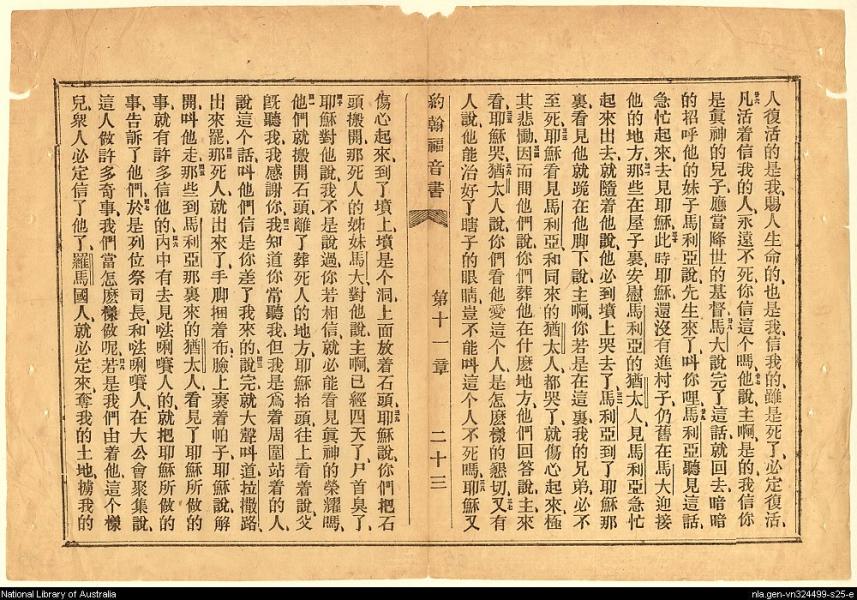 人復活的是我賜人生命的也是我信我的雖是死了必定復活
凡活着信我的人永遠不死你信這個嗎他說主啊是的我信你
是眞神的兒子應當降世的基督馬大說完了這話就回去暗暗
的招呼他的妹子馬利亞說先生來了叫你哩馬利亞聽見這話
急忙起來去見耶穌此時耶穌還沒有進村子仍舊在馬大迎接
他的地方那些在屋子裏安慰馬利亞的猶太人見馬利亞急忙
起來出去就隨着他說他必到墳上哭去了馬利亞到了耶穌那
裏看見他就跪在他脚下說主啊你若是在這裏我的兄弟必不
至死耶穌看見馬利亞和同來的猶太人都哭了就傷心起來極
其悲慟因而問他們說你們葬他在什麽地方他們回答說主來
看耶穌哭猶太人說你們看他愛這個人是怎麽樣的懇切又有
人說他能治好了瞎子的眼睛豈不能叫這個人不死嗎耶穌又
約翰福音書 第十一章 二十三
傷心起來到了墳上墳是个洞上面放着石頭耶穌說你們把石
頭搬開那死人的姊妹馬大對他說主啊已經四天了尸首臭了
耶穌對他說我不是說過你若相信就必能看見眞神的榮耀嗎
他們就搬開石頭離了葬死人的地方耶穌抬頭往上看着說父
旣聽我我感謝你我知道你常聽我但我是爲着周圍站着的人
說這个話叫他們信是你差了我來的說完就大聲呌道拉撒路
出來罷那死人就出來了手脚捆着布臉上裹着帕子耶穌說解
開叫他走那些到馬利亞那裏來的猶太人看見了耶穌所做的
事就有許多信他的內中有去見𠵽唎賽人的就把耶穌所做的
事告訴了他們於是列位祭司長和𠵽唎賽人在大公會聚集說
這人做許多奇事我們當怎麽樣做呢若是我們由着他這个樣
兒衆人必定信了他了羅馬國人就必定來奪我的土地擄我的
National Library of Australia
nla.gen-vn324499-s25-e